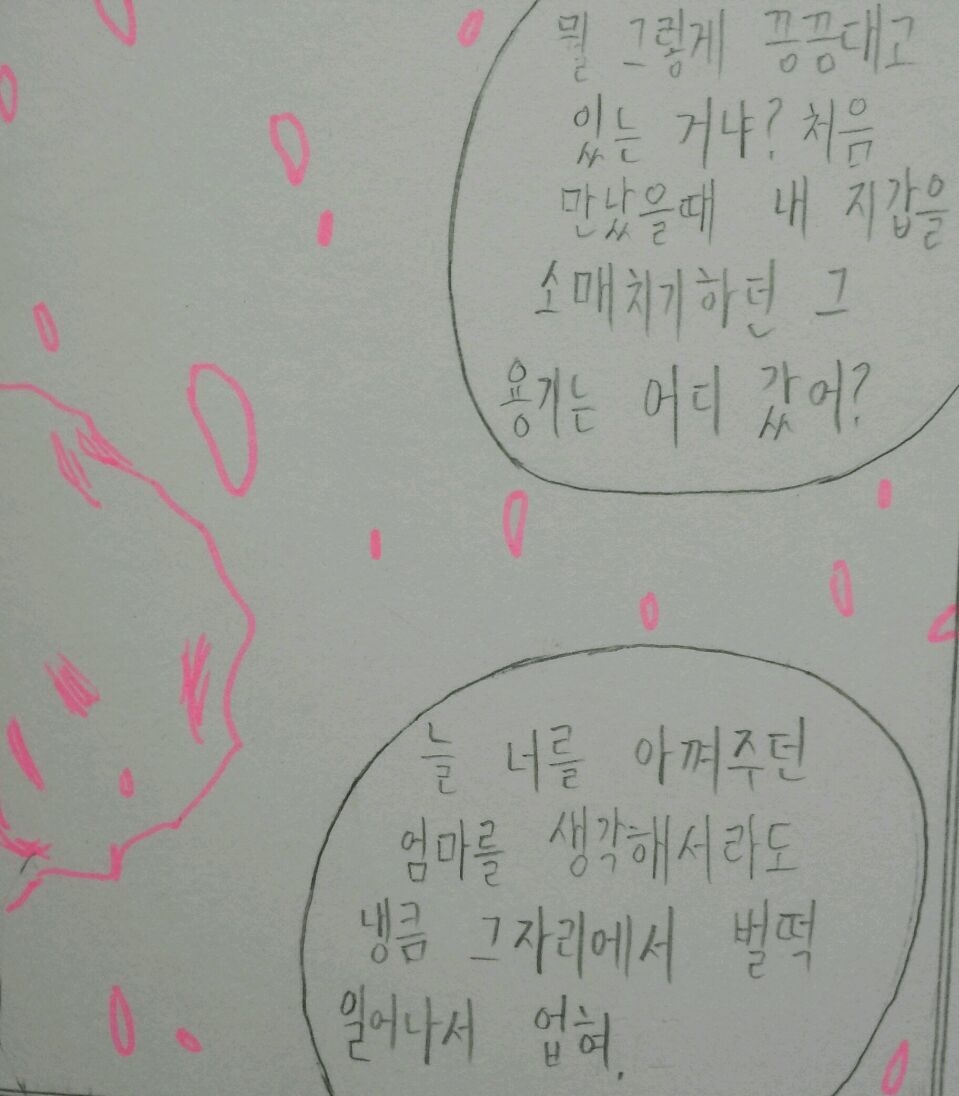 뭘 그렇게 끙끙대고
있는 거냐? 처음
만났을때 내 지갑을
소매치기하던 그
용기는 어디 갔어?
늘 너를 아껴주던
엄마를 생각해서라도
냉큼 그자리에서 벌떡
일어나서 업혀.